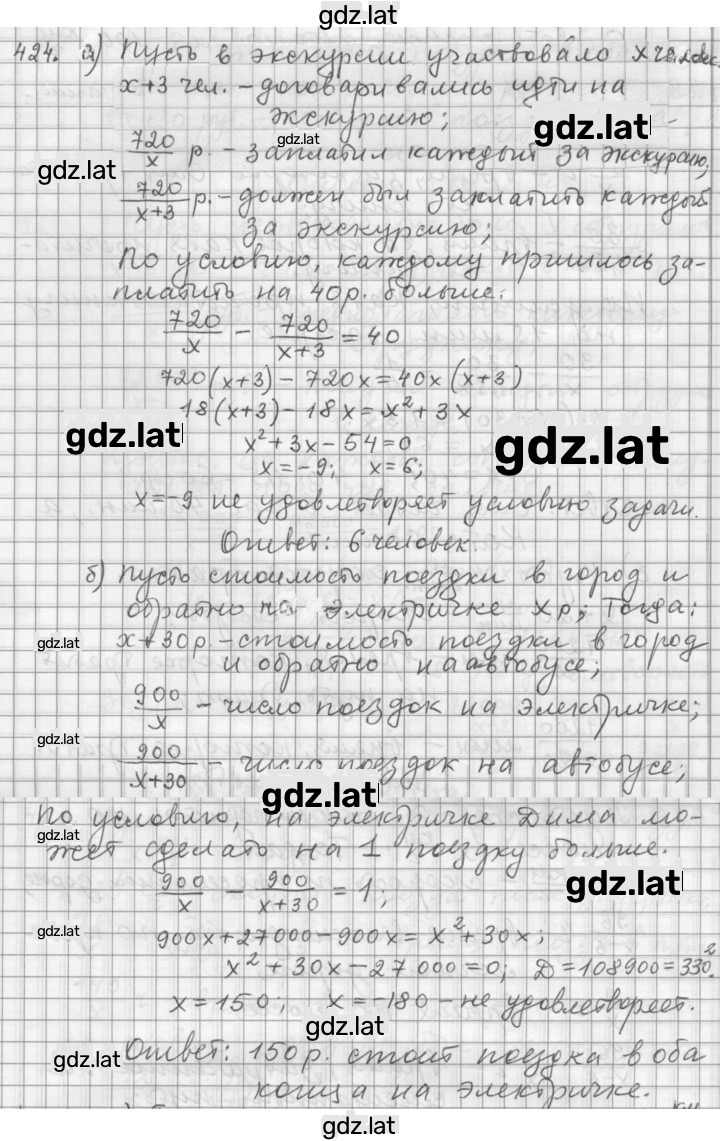 gdz.lat
424. а) Пусть в экскурсии участвовало x человек.
x+3 чел. – договаривались идти на
экскурсию;
gdz.lat
gdz.lat
gdz.lat
720/x р. – заплатил каждый за экскурсию,
720/(x+3) р. – должен был заплатить каждый
за экскурсию;
По условию, каждому пришлось за-
платить на 40р. больше:
720/x – 720/(x+3) = 40
720(x+3) – 720x = 40x(x+3)
18(x+3) – 18x = x²+3x
gdz.lat
gdz.lat
x²+3x–54=0
x=–9; x=6;
x=–9 не удовлетворяет условию задачи.
Ответ: 6 человек.
б) Пусть стоимость поездки в город и
обратно на электричке xр; Тогда:
gdz.lat
x+30р. – стоимость поездки в город
и обратно на автобусе;
900/x – число поездок на электричке;
gdz.lat
900/(x+30) – число поездок на автобусе;
gdz.lat
По условию, на электричке Дима мо-
gdz.lat
жет сделать на 1 поездку больше.
900/x – 900/(x+30) = 1;
gdz.lat
gdz.lat
900x+27000–900x = x²+30x;
x²+30x–27000=0; D=108900=330².
x=150; x=–180 – не удовлетворяет.
gdz.lat
gdz.lat
Ответ: 150р. стоит поездка в оба
конца на электричке.
gdz.lat